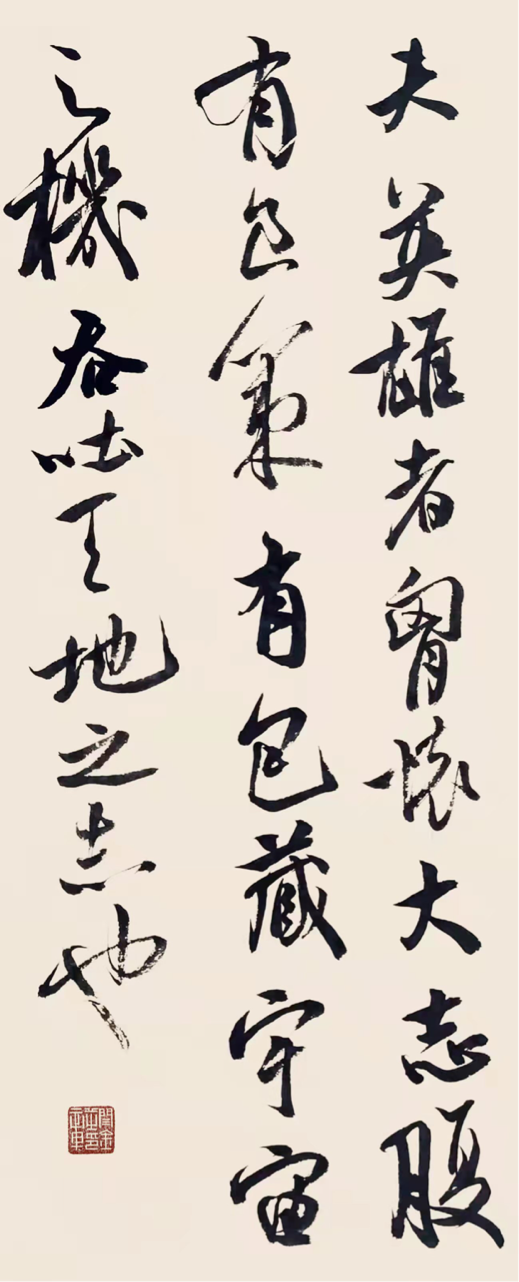 夫英雄者胷懷大志腹
有良策有包藏宇宙
之機吞吐天地之志也